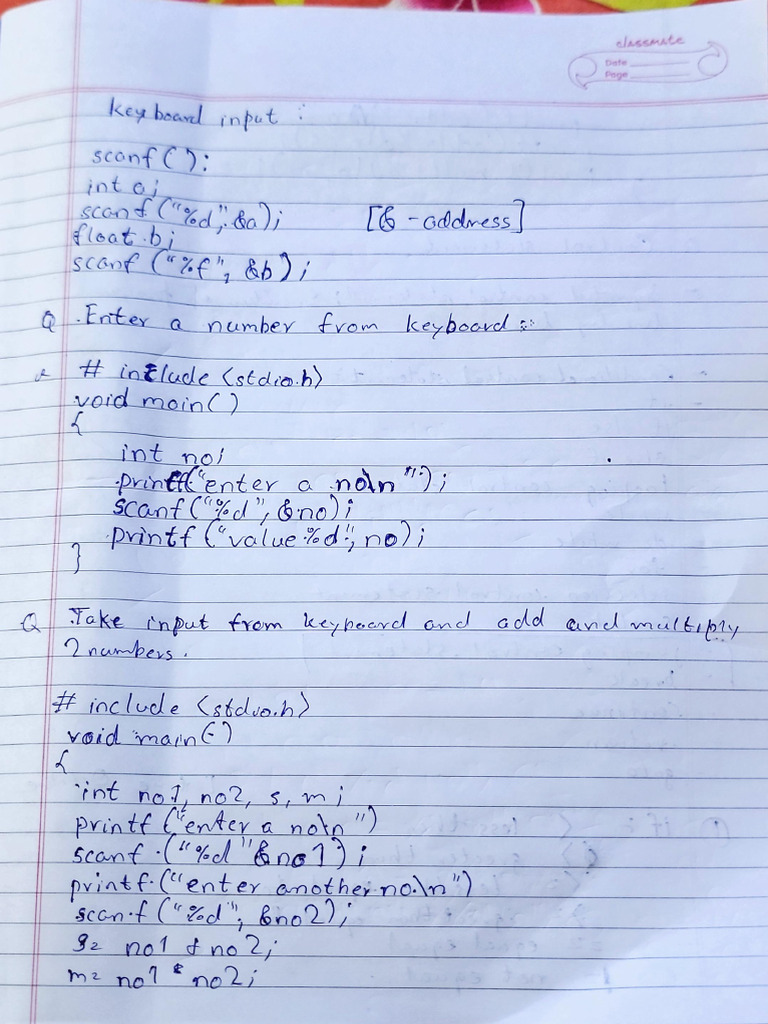 classmate
Date
Page
Keyboard input :
scanf():
int a;
scanf("%d", &a); [& - address]
float b;
scanf ("%f", &b);
Q .Enter a number from keyboard ::
# include <stdio.h>
void main()
{
int no;
printf("enter a no\n");
scanf("%d", &no);
printf ("value %d", no);
}
Q Take input from keyboard and add and multiply
2 numbers.
# include <stdio.h>
void main()
{
int no1, no2, s, m;
printf ("enter a no\n")
scanf ("%d" &no1);
printf ("enter another no.\n")
scanf ("%d", &no2);
s= no1 + no2;
m= no1 * no2;